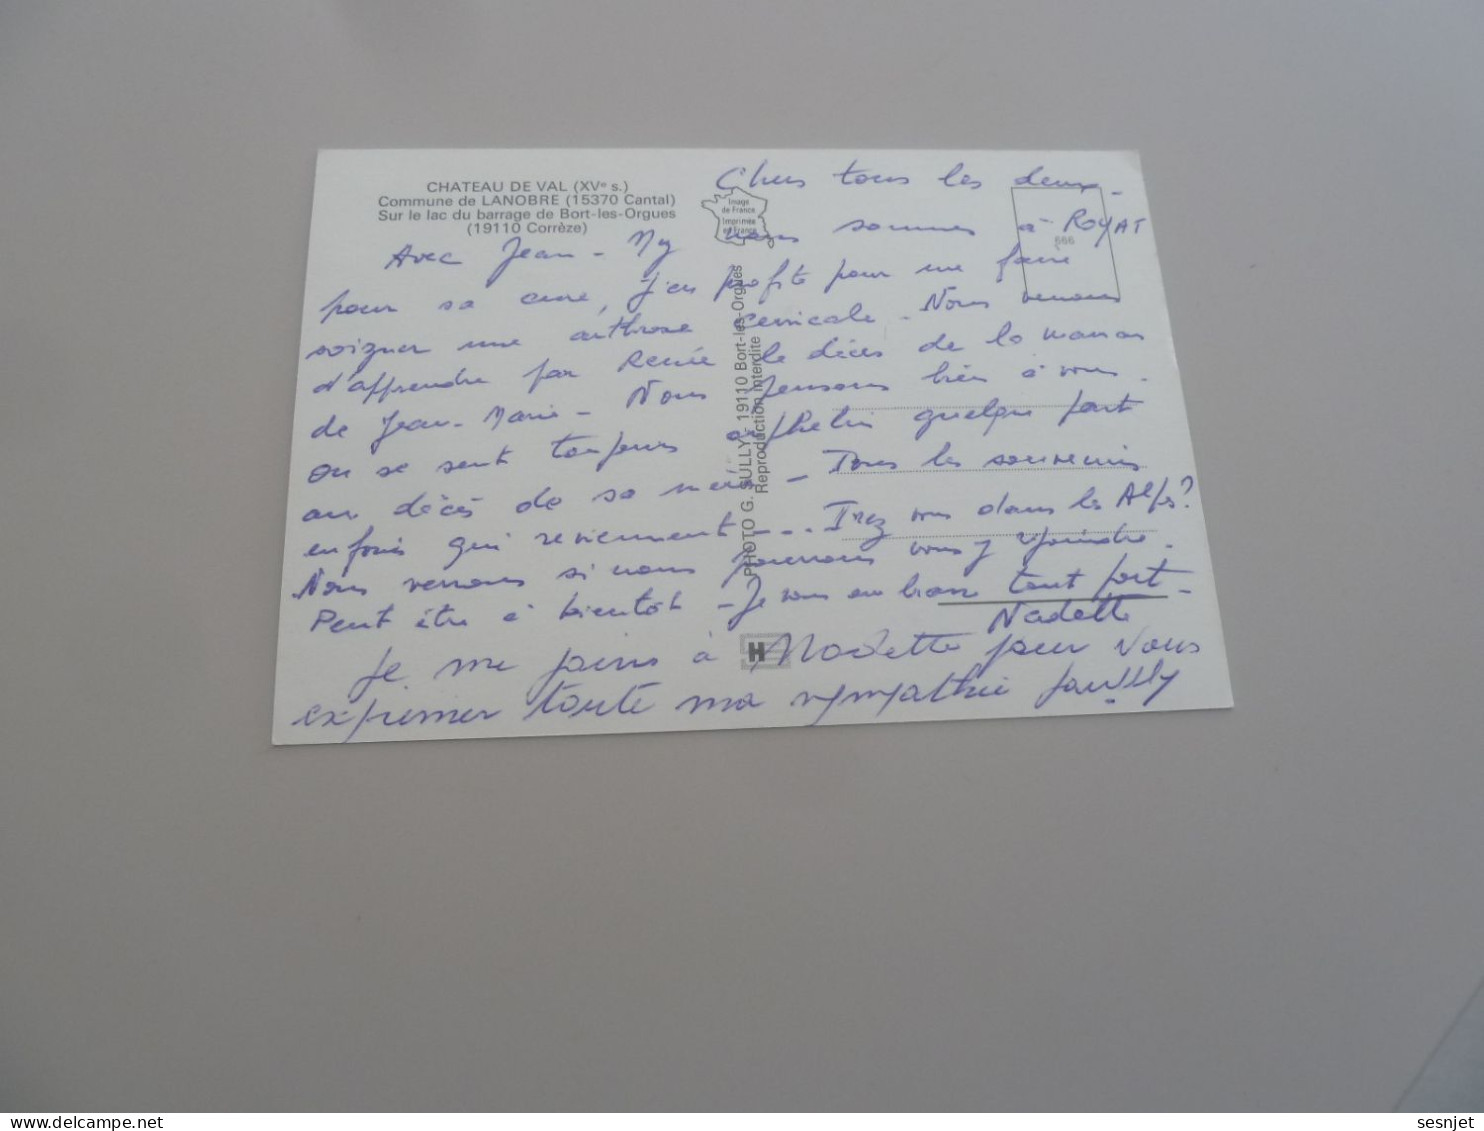 CHATEAU DE VAL (XVe s.)
Commune de LANOBRE (15370 Cantal)
Sur le lac du barrage de Bort-les-Orgues
(19110 Corrèze)
Image
de France
Imprimée
en France
666
PHOTO G. SULLY - 19110 Bort-les-Orgues
Reproduction interdite
Chers tous les deux -
Avec Jean - nous sommes à ROYAT
pour sa cure, j'en profite pour me faire
soigner une arthrose cervicale - Nous venons
d'apprendre par Renée le décès de la maman
de Jean-Marie - Nous pensons bien à vous.
on se sent toujours orphelin quelque part
au décès de sa mère - Tous les souvenirs
enfouis qui reviennent - . . . Irez vous dans les Alpes ?
Nous verrons si nous pourrons vous y rejoindre.
Peut être à bientôt - Je vous embrasse tout fort -
Nadette
Je me joins à Nadette pour vous
exprimer toute ma sympathie
H
sesnjet